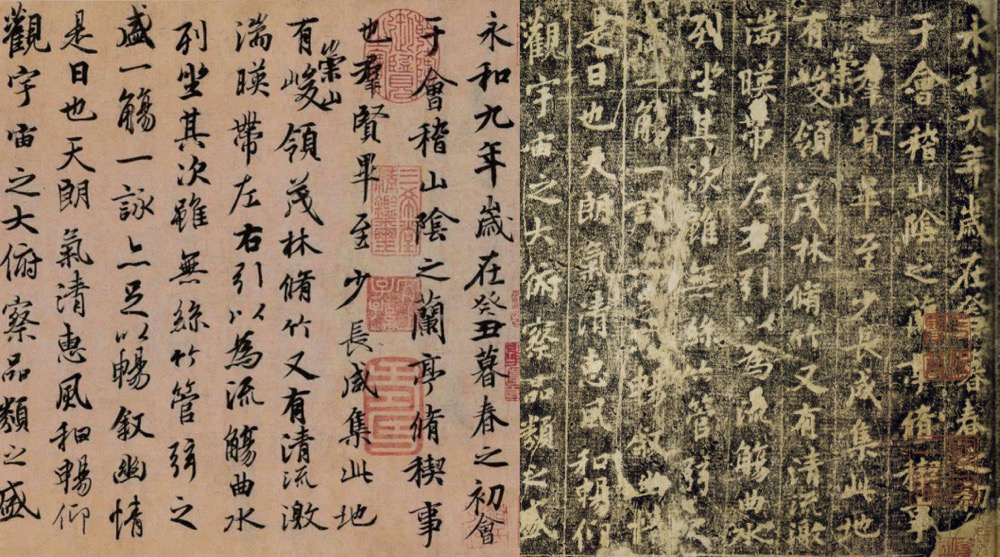 永和九年歲在癸丑暮春之初會
于會稽山陰之蘭亭脩稧事
也羣賢畢至少長咸集此地
有崇山峻領茂林脩竹又有清流激
湍暎帶左右引以為流觴曲水
列坐其次雖無絲竹管弦之
盛一觴一詠亦足以暢敘幽情
是日也天朗氣清惠風和暢仰
觀宇宙之大俯察品類之盛
永和九年歲在癸丑暮春之初
于會稽山陰之蘭亭脩稧事
也羣賢畢至少長咸集此地
有崇山峻領茂林脩竹又有清流激
湍暎帶左右引以為流觴曲水
列坐其次雖無絲竹管弦之
盛一觴一詠亦足以暢敘幽情
是日也天朗氣清惠風和暢仰
觀宇宙之大俯察品類之盛